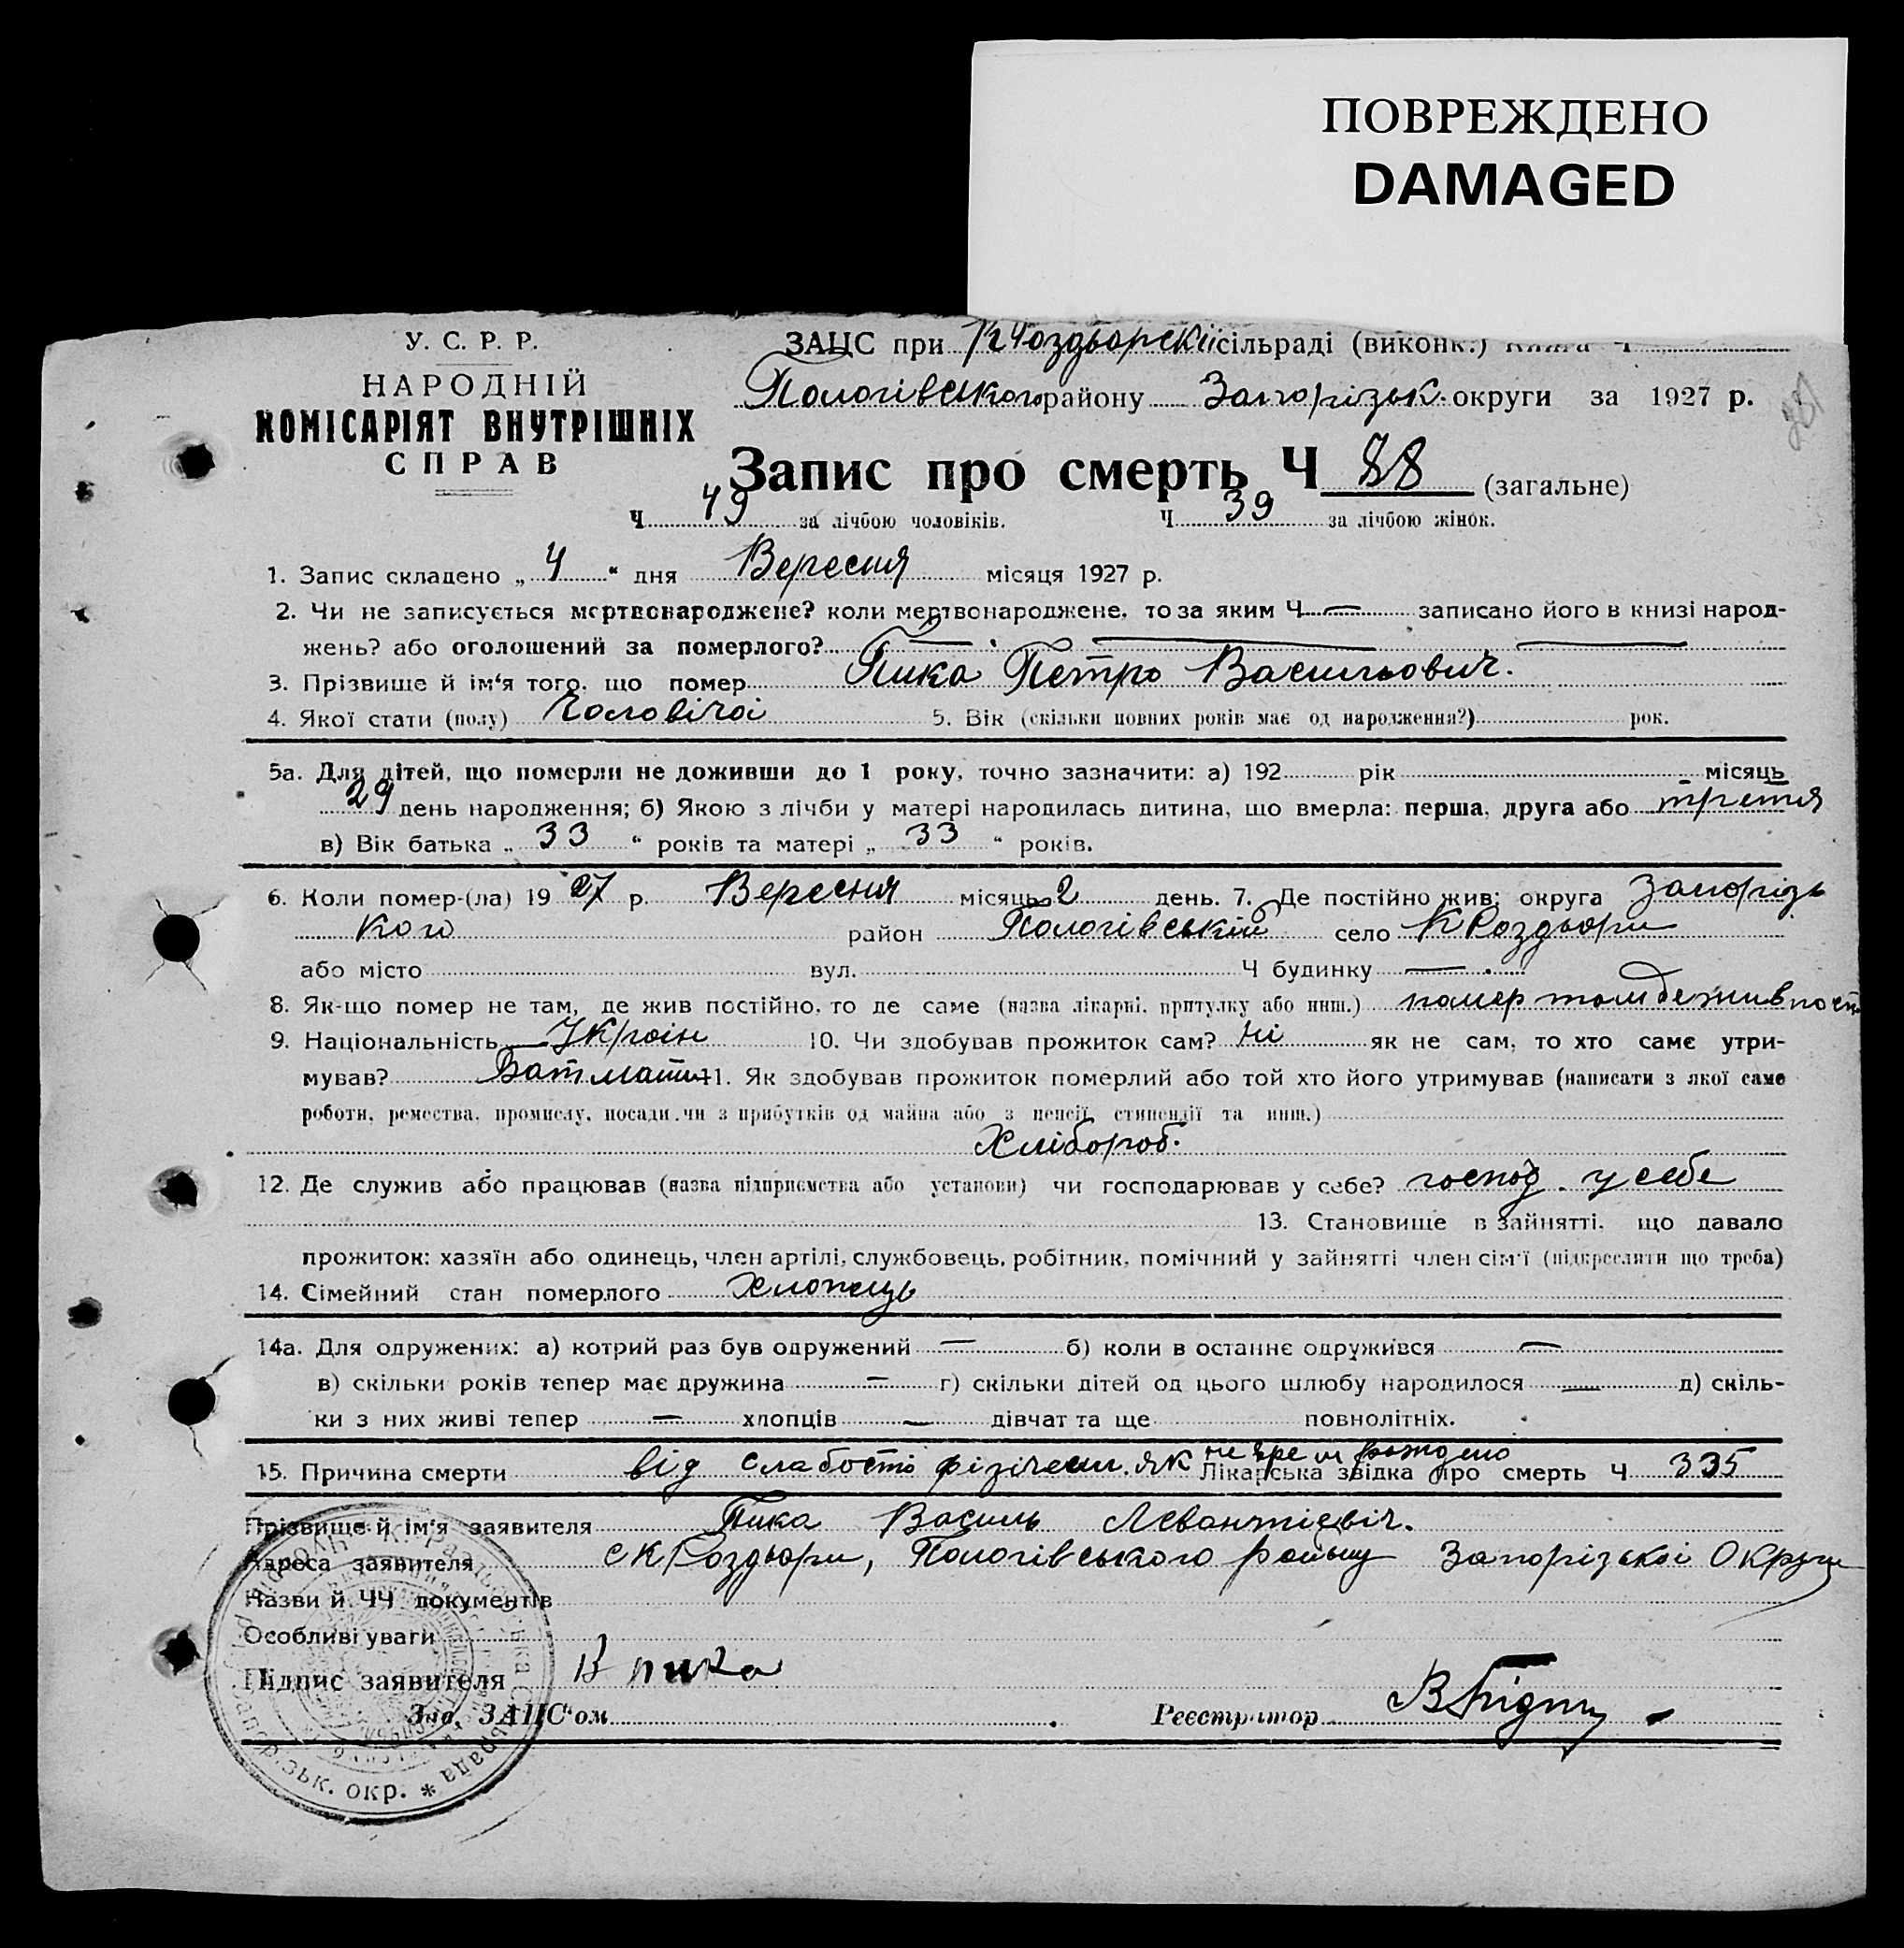 ПОВРЕЖДЕНО
DAMAGED
У. С. Р. Р.
НАРОДНІЙ
КОМІСАРІЯТ ВНУТРІШНІХ
СПРАВ
ЗАЦС при сільраді (виконк.) Книга Ч
Пологівського району Запорізьк. округи за 1927 р.
Запис про смерть Ч 88 (загальне)
Ч 49 за лічбою чоловіків. Ч 39 за лічбою жінок.
1. Запис складено „ 4 “ дня Вересня місяця 1927 р.
2. Чи не записується мертвонароджене? коли мертвонароджене, то за яким Ч — записано його в книзі народ-
жень? або оголошений за померлого? — — —
3. Прізвище й ім‘я того, що помер Пика Петро Васильович.
4. Якої стати (полу) Чоловічої 5. Вік (скільки повних років має од народження?) рок.
5а. Для дітей, що померли не доживши до 1 року, точно зазначити: а) 192 рік місяць
29 день народження; б) Якою з лічби у матері народилась дитина, що вмерла: перша, друга або третя
в) Вік батька „ 33 “ років та матері „ 33 “ років.
6. Коли помер-(ла) 19 27 р. Вересня місяць 2 день. 7. Де постійно жив: округа Запорізь
кого район Пологівський село К Роздьори
або місто вул. Ч будинку —
8. Як-що помер не там, де жив постійно, то де саме (назва лікарні, притулку або инш.) помер там де жив пост.
9. Національність Украін 10. Чи здобував прожиток сам? Ні як не сам, то хто саме утри-
мував? Бат мати 11. Як здобував прожиток померлий або той хто його утримував (написати з якої саме
роботи, ремества, промислу, посади чи з прибутків од майна або з пенсії, стипендії та инш.)
Хлібороб.
12. Де служив або працював (назва підприємства або установи) чи господарював у себе? господ. у себе
13. Становище в зайнятті, що давало
прожиток: хазяїн або одинець, член артілі, службовець, робітник, помічний у зайнятті член сім‘ї (підкреслити що треба)
14. Сімейний стан померлого Хлопець
14а. Для одружених: а) котрий раз був одружений — б) коли в останнє одружився —
в) скільки років тепер має дружина — г) скільки дітей од цього шлюбу народилося — д) скіль-
ки з них живі тепер — хлопців — дівчат та ще повнолітніх.
15. Причина смерти від слабости фізічесн. як Лікарська звідка про смерть Ч 335
Прізвище й ім‘я заявителя Пика Василь Левонтіевіч.
Адреса заявителя с К Роздьори, Пологівського району Запорізької Округи
Назви й ЧЧ документів
Особливі уваги
Підпис заявителя В Пика
Зав. ЗАЦС‘ом Реєстратор
Сільрада * Запорізьк. окр. *